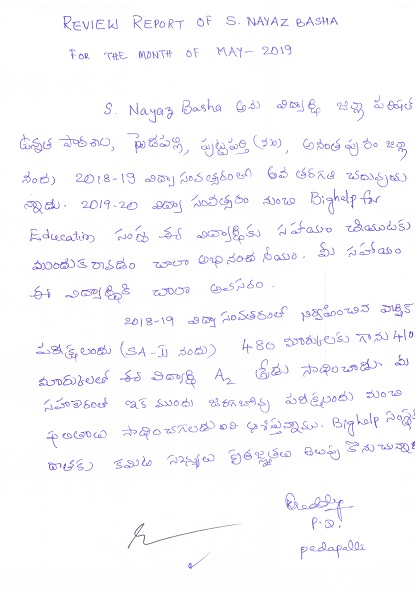 REVIEW REPORT OF S. NAYAZ BASHA
FOR THE MONTH OF MAY-2019
S. Nayaz Basha అను విద్యార్థి జిల్లా పరిషత్
ఉన్నత పాఠశాల, పెడపల్లి, పుట్టపర్తి (మం), అనంతపురం జిల్లా
నందు 2018-19 విద్యా సంవత్సరంలో 6వ తరగతి చదువుచు
న్నాడు. 2019-20 విద్యా సంవత్సరం నుంచి Bighelp for
Education సంస్థ ఈ విద్యార్థికు సహాయం చేయుటకు
ముందుకు రావడం చాలా అభినందనీయం. మీ సహాయం
ఈ విద్యార్థికి చాలా అవసరం.
2018-19 విద్యా సంవతరంలో నిర్వహించిన వార్షిక
పరీక్షలందు (SA-II నందు) 480 మార్కులకు గాను 410
మార్కులతో ఈ విద్యార్థి A2 గ్రేడు సాధించాడు. మీ
సహకారంతో ఇక ముందు జరగబోవు పరీక్షలందు మంచి
ఫలితాలు సాధించగలడు అని ఆశిస్తున్నాము. Bighelp సంస్థకు
దాతకు కమిటి సభ్యులు కృతజ్ఞతలు తెలుపు కొనుచున్నాము
P.D.
pedapalli